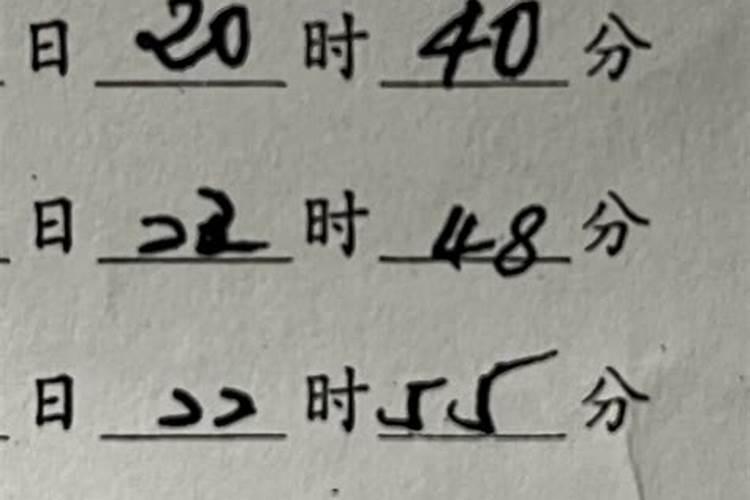 日 20 时 40 分
日 22 时 48 分
日 22 时 55 分